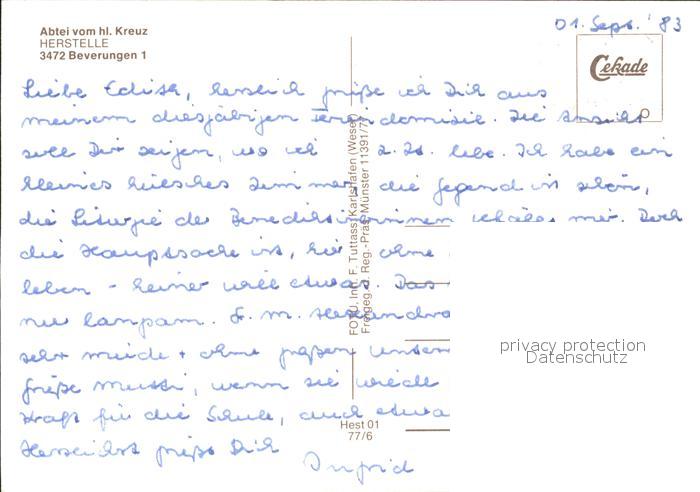 Abtei vom hl. Kreuz
HERSTELLE
3472 Beverungen 1
01. Sept. '83
Cekade
Liebe Edith, herzlich grüße ich Dich aus
meinem diesjährigen Feriendomizil. Die Ansicht
soll Dir zeigen, wo ich z. Zt. lebe. Ich habe ein
kleines hübsches Zimmer, die Gegend ist schön,
die Liturgie der Benediktinerinnen mir. Doch
die Hauptsache ist, hier ohne
leben - keiner will etwas. Das
nur langsam. S. M. Alexandra
sehr müde + ohne großen
Grüße Mutti, wenn sie wieder
Kraft für die Schule, auch etwa
Herzlichst grüßt Dich
Ingrid
FOTO: Inh. F. Tuttass, Karlshafen (Weser)
Freigeg. d. Reg.-Präs. Münster 11391/77
Hest 01
77/6
privacy protection
Datenschutz